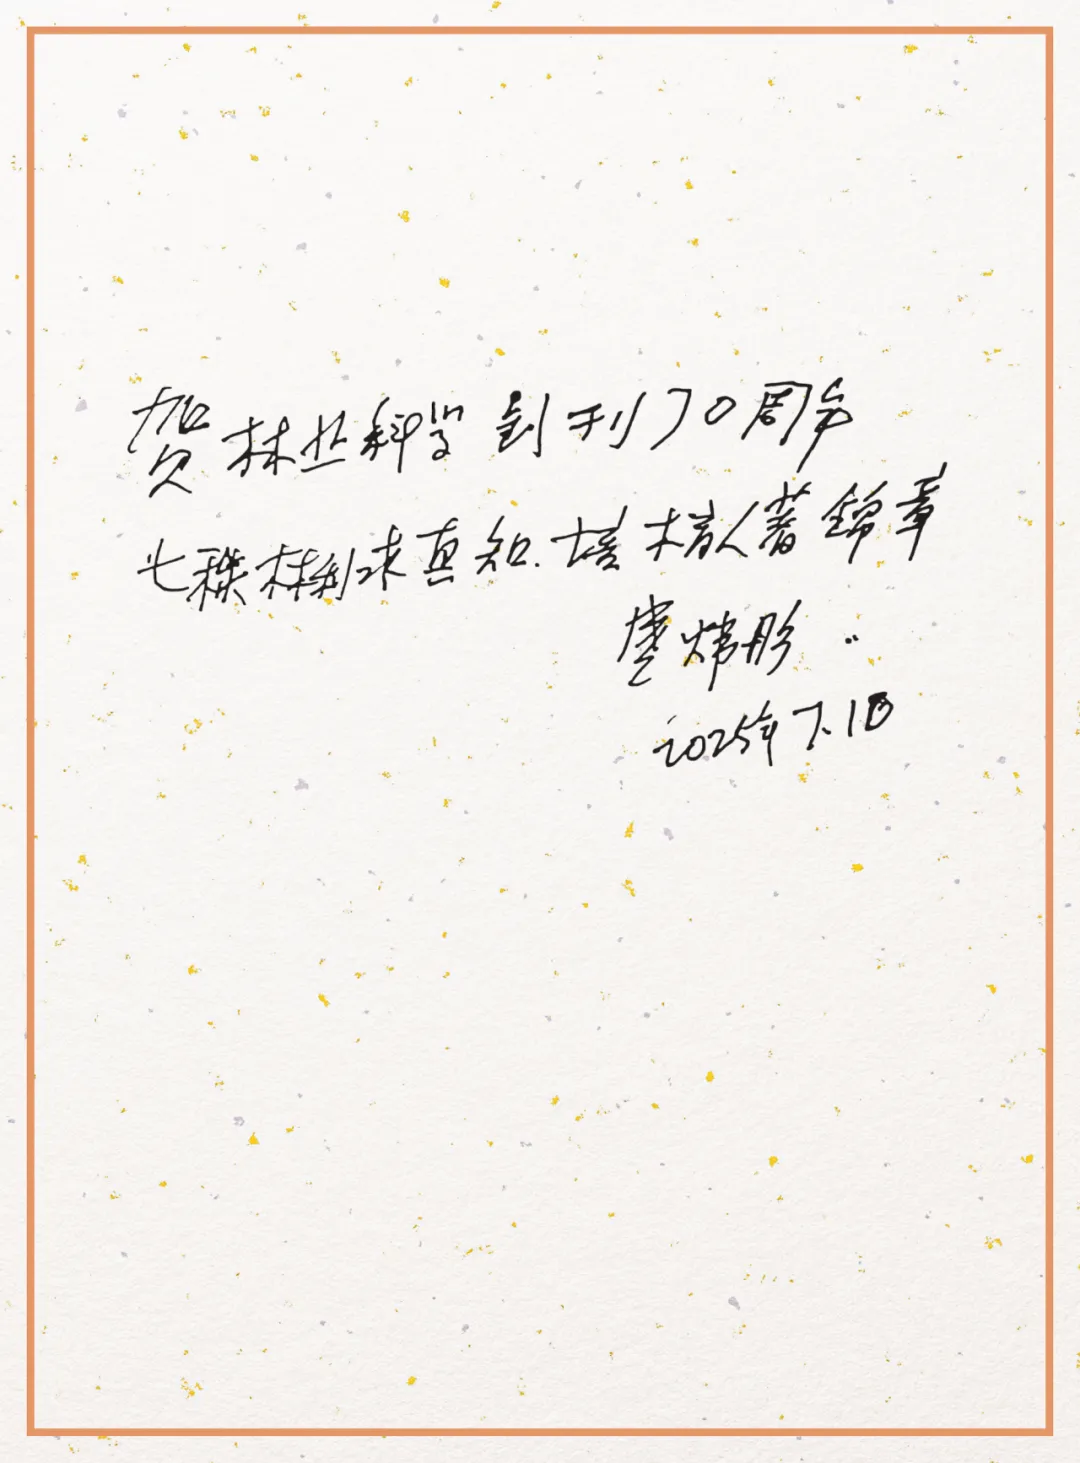 贺林业科学创刊70周年
七秩林刊求真知.培木树人著锦章
炜彤
2025年7.18